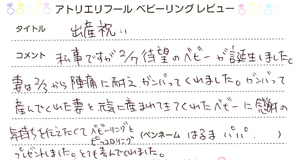 アトリエリフール ベビーリング レビュー
タイトル 出産祝い
コメント 私事ですが2/7待望のベビーが誕生しました。
妻は2/3から陣痛に耐えガンバってくれました。ガンバって
産んでくれた妻と元気に産まれてきてくれたベビーに感謝の
気持ちを伝えたくてベビーリングと
プレゼントしました。とても喜んでくれました。
(ペンネーム はるま パパ )